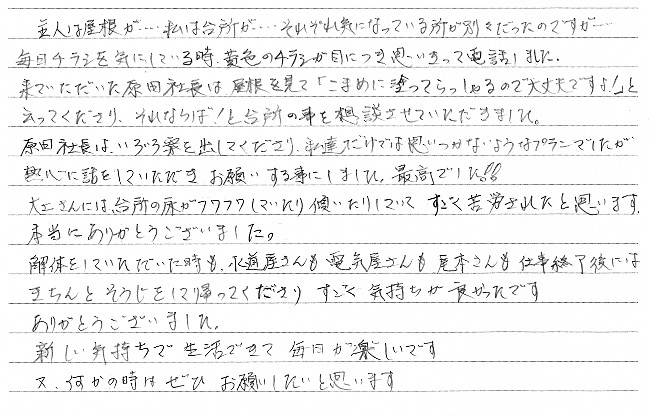 主人は屋根が……私は台所が……それぞれ気になっている所が別々だったのですが……
毎日チラシを気にしている時、黄色のチラシが目につき思いきって電話しました。
来ていただいた原田社長は屋根を見て「こまめに塗ってらっしゃるので大丈夫ですよ!」と
云ってくださり、それならば!と台所の事を相談させていただきました。
原田社長は、いろいろ案を出してくださり、私達だけでは思いつかないようなプランでしたが
熱心に話をしていただき お願いする事にしました。最高でした!!
大工さんには、台所の床がフワフワしていたり傾いたりしていて すごく苦労されたと思います。
本当にありがとうございました。
解体をしていただいた時も、水道屋さんも 電気屋さんも 尾本さんも 仕事終了後には
きちんと そうじをして帰ってくださり すごく 気持ちが 良かったです
ありがとうございました。
新しい気持ちで 生活できて 毎日が楽しいです
又、何かの時は ぜひ お願いしたいと思います